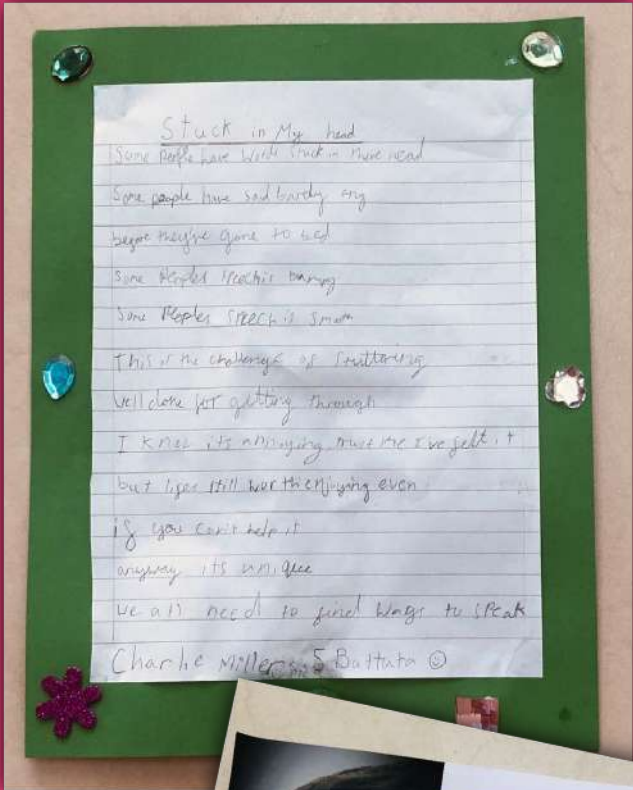 Stuck in My head
Some People have words stuck in there head
Some people have said barely any
before they've gone to bed
Some Peoples speech is bumpy
Some Peoples speech is smooth
This is the challenge of stuttering
Well done for getting through
I know its annoying, trust me I've felt it
but lifes still worth enjoying even
if you can't help it
anyway its unique
We all need to find ways to speak
Charlie Miller 5 Battuta